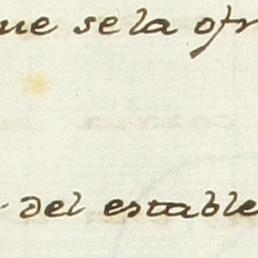 ue se la ofr
del estable